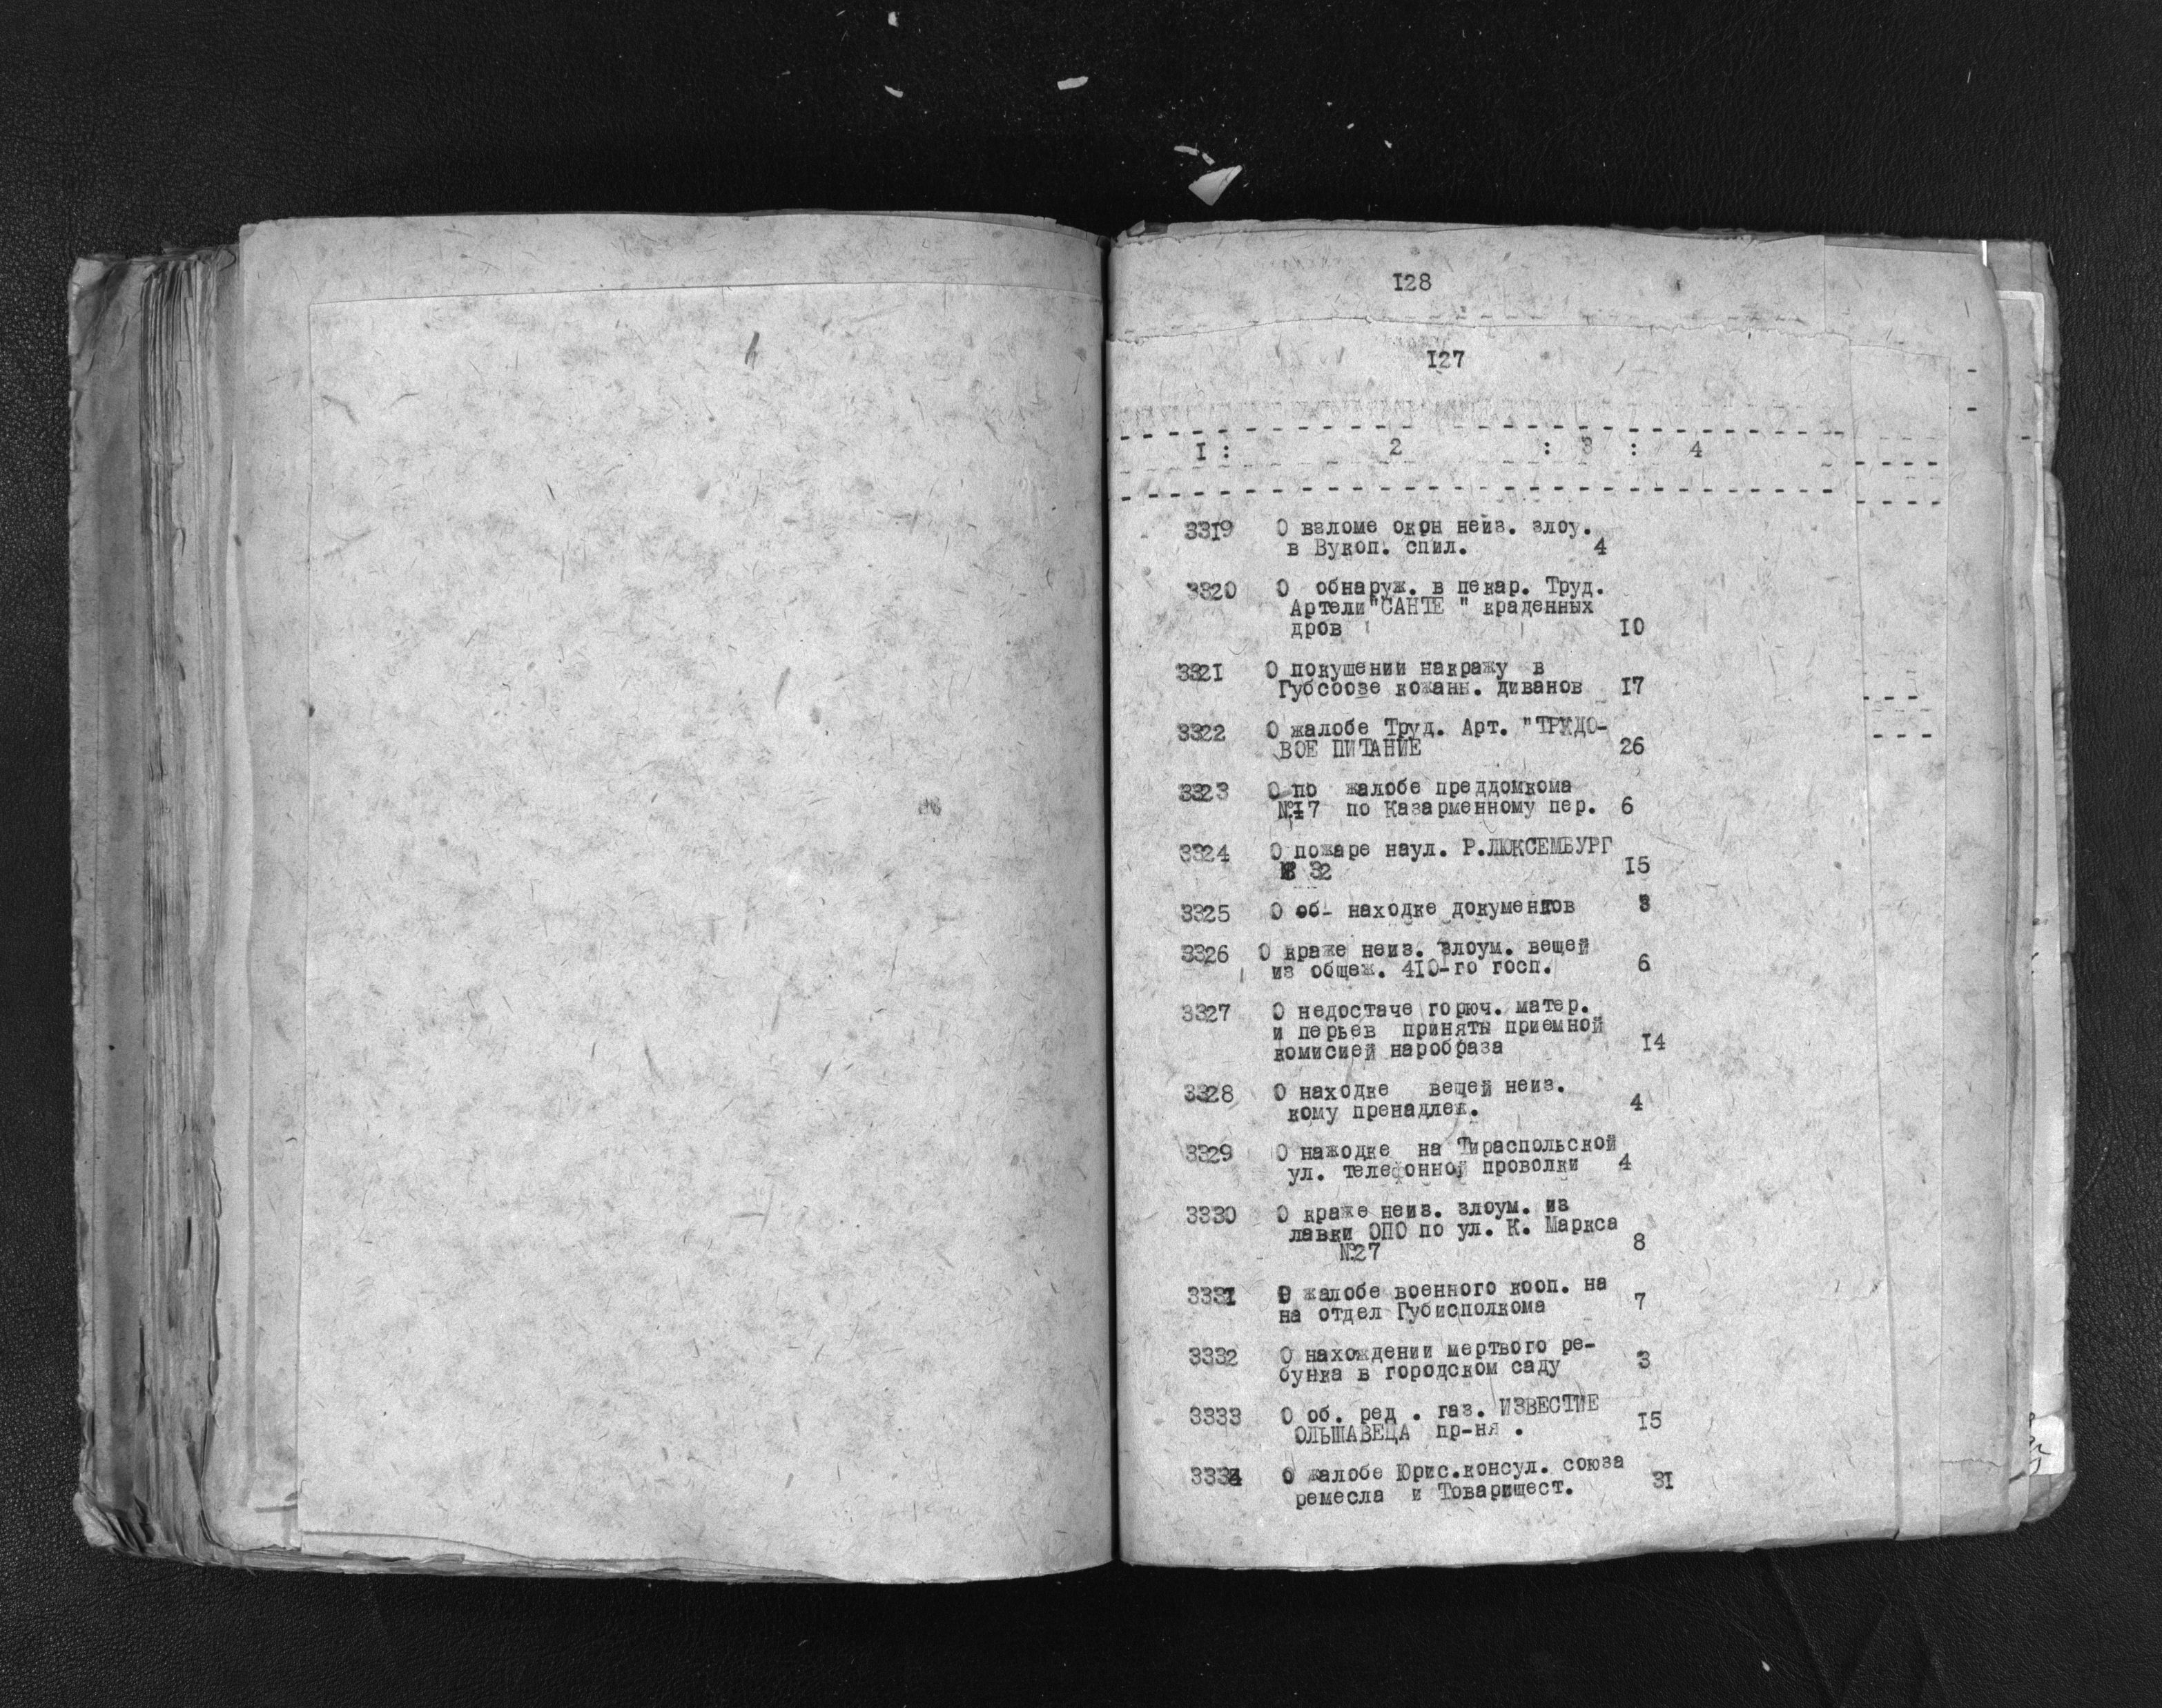 128
127
I : 2 : 3 : 4
3319 О взломе окон неиз. злоу.
в Вукоп. спил. 4
3320 О обнаруж. в пекар. Труд.
Артели "САНТЕ " краденных
дров 10
3321 О покушении накражу в
Губсоюзе кожанн. диванов 17
3322 О жалобе Труд. Арт. "ТРУДО-
ВОЕ ПИТАНИЕ 26
3323 О по жалобе преддомкома
№17 по Казарменному пер. 6
3324 О пожаре наул. Р.ЛЮКСЕМБУРГ
№ 32 15
3325 О об- находке документов 3
3326 О краже неиз. злоум. вещей
из общеж. 410-го госп. 6
3327 О недостаче горюч. матер.
и перьев приняты приемной
комисией наробраза 14
3328 О находке вещей неиз.
кому пренадлеж. 4
3329 О нажодке на Тираспольской
ул. телефонной проволки 4
3330 О краже неиз. злоум. из
лавки ОПО по ул. К. Маркса
№27 8
3331 О жалобе военного кооп. на
на отдел Губисполкома 7
3332 О нахождении мертвого ре-
бунка в городском саду 3
3333 О об. ред . газ. ИЗВЕСТИЕ
ОЛЬШАВЕЦА пр-ня . 15
3334 О жалобе Юрис.консул. союза
ремесла и Товарищест. 31